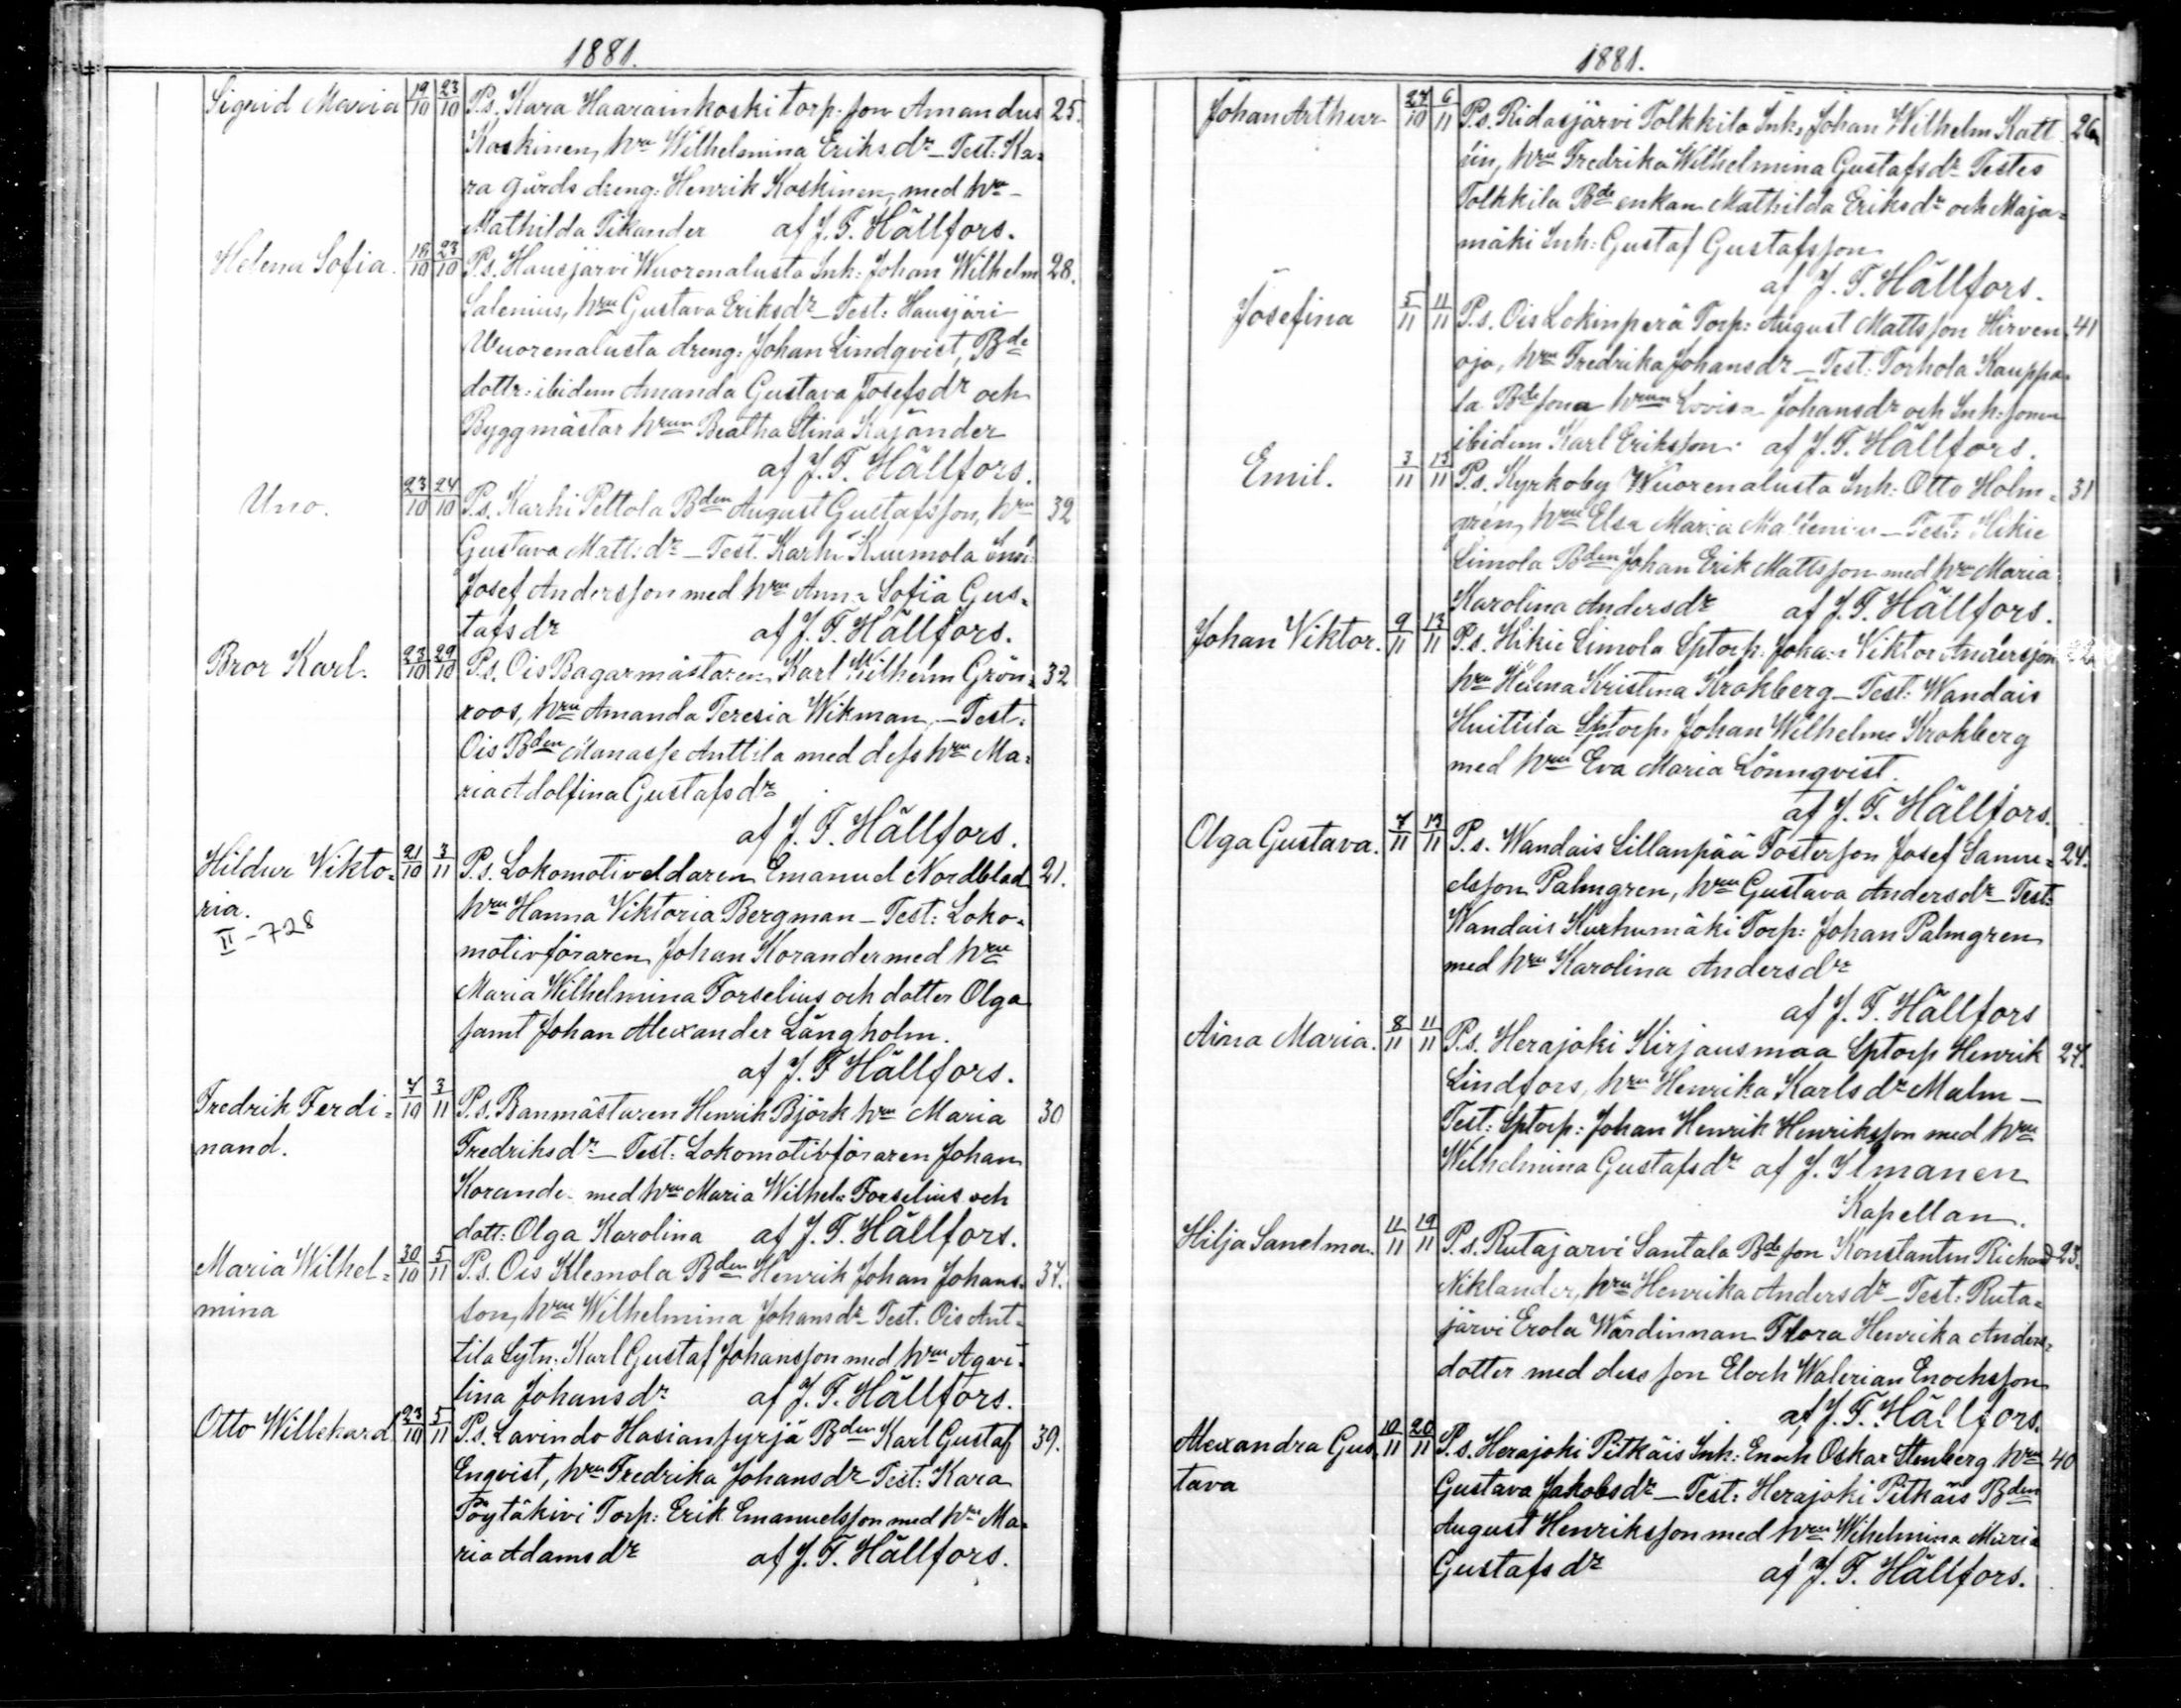 1881.
Sigrid Maria 19/10 23/10 P.s. Kara Haarainkoski torp. son Amandus 25.
Koskinen, hru Wilhelmina Eriksdr – Test: Ka=
ra gårds dreng: Henrik Koskinen, med hru
Mathilda Tikander af J. F. Hällfors.
Helena Sofia. 18/10 23/10 P.s. Hausjärvi Wuorenalusta Inh: Johan Wilhelm 28.
Salenius, hru Gustava Eriksdr – Test: Hausjäri
Wuorenalusta dreng: Johan Lindqvist, Bde
dottr: ibidem Amanda Gustava Josefsdr och
Byggmästar hrun Beatha Stina Kajander
af J. F. Hällfors.
Uno. 23/10 24/10 P.s. Karhi Peltola Bden August Gustafsson, hru 32
Gustava Matt:dr – Test. Karhi Kuumola
Josef Andersson med hru Anna Sofia Gus=
tafsdr af J. F. Hällfors.
Bror Karl. 23/10 29/10 P.s. Ois Bagarmästaren Karl Wilhelm Grön= 32
roos, hru Amanda Teresia Wikman, – Test:
Ois Bden Manasse Anttila med dess hru Ma=
ria Adolfina Gustafsdr
af J. F. Hällfors.
Hildur Vikto= 21/10 3/11 P.s. Lokomotiveldaren Emanuel Nordblad 21.
ria. hru Hanna Viktoria Bergman – Test: Loko=
II–728 motivföraren Johan Korander med hru
Maria Wilhelmina Forselius och dotter Olga
samt Johan Alexander Långholm.
af J. F Hällfors.
Fredrik Ferdi= 7/10 3/11 P.s. Banmästaren Henrik Björk hru Maria 30
nand. Fredriksdr – Test: Lokomotivföraren Johan
Korande med hru Maria Wilhel: Forselius och
dott: Olga Karolina af J. F. Hällfors.
Maria Wilhel= 30/10 5/11 P.s. Ois Klemola Bden Henrik Johan Johans= 37.
mina son, hru Wilhelmina Johansdr Test. Ois Ant=
tila Lytn: Karl Gustaf Johansson med hru Aqvi=
lina Johansdr af J. F. Hällfors.
Otto Willehard 23/10 5/11 P.s. Lavindo Hasianpyrjä Bden Karl Gustaf 39.
Enqvist, hru Fredrika Johansdr – Test: Kara
Pöytäkivi Torp: Erik Emanuelsson med hru Ma=
ria Adamsdr af J. F. Hällfors.
1881.
Johan Arthur 27/10 6/11 P.s. Ridasjärvi Tolkkila Inh: Johan Wilhelm Katt
lin, hru Fredrika Wilhelmina Gustafsdr Testes
Tolkkila Bde enkan Mathilda Eriksdr och Maja=
mäki Inh: Gustaf Gustafsson
af J. F. Hällfors.
Josefina 5/11 11/11 P.s. Ois Lokinperä Torp: August Mattsson Hirven 41
oja, hru Fredrika Johansdr – Test: Torhola Kauppa=
la Bdesona hrun Lovisa Johansdr och Inh: sonen
ibidem Karl Eriksson. af J. F. Hällfors.
Emil. 3/11 13/11 P.s. Kyrkoby Wuorenalusta Inh: Otto Holm= 31
gren, hru Elsa Maria – Test: Hikie
Simola Bden Johan Erik Mattsson med hru Maria
Karolina Andersdr af J. F. Hällfors.
Johan Viktor. 9/11 13/11 P.s. Hikie Simola Sptorp: Johan Viktor Andersson
hru Helena Kristina Krokberg – Test: Wandais
Huittila Sptorp: Johan Wilhelm Krokberg
med hru Eva Maria Lönnqvist.
af J. F. Hällfors.
Olga Gustava. 7/11 13/11 P.s. Wandais Sillanpää Fosterson Josef Samu= 24.
elsson Palmgren, hru Gustava Andersdr – Test:
Wandais Kurhumäki Torp: Johan Palmgren
med hru Karolina Andersdr
af J. F. Hällfors
Aina Maria. 8/11 11/11 P.s. Herajoki Kirjausmaa Sptorp Henrik 27.
Lindfors, hru Henrika Karlsdr Malm –
Test: Sptorp: Johan Henrik Henriksson med hru
Wilhelmina Gustafsdr af J. Ilmanen
Kapellan.
Hilja Sandma. 11/11 19/11 P.s. Rutajarvi Santala Bde son Konstantin Richard 23.
Niklander, hru Henrika Andersdr – Test: Ruta=
järvi Erola Wärdinnan Flora Henrika Anders=
dotter med dess son Eloch Walerian Enochsson
af J. F. Hällfors.
Alexandra Gus 10/11 20/11 P.s. Herajoki Pitkäis Inh: Enoch Oskar Stenberg hru 40
tava Gustava Jakobsdr – Test: Herajoki Pitkäis Bden
August Henriksson med hru Wilhelmina Maria
Gustafsdr af J. F. Hällfors.